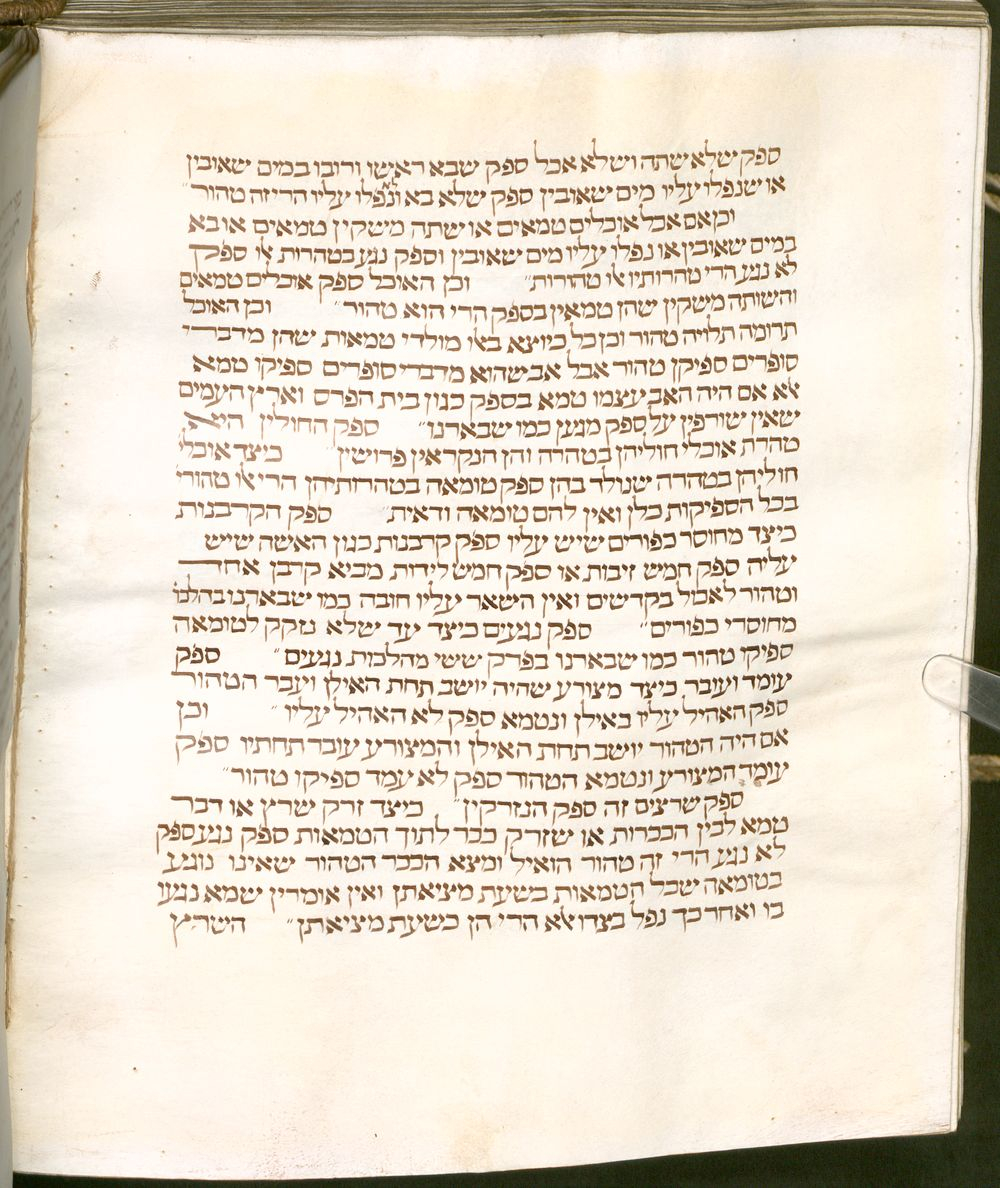 ספק שלא שתה ושלא אכל ספק שבא ראשו ורובו במים שאובין
או שנפלו עליו מים שאובין ספק שלא בא ולא נפלו עליו הריזה טהור״
וכן אם אכל אוכלים טמאים או שתה משקין טמאים או בא
במים שאובין או נפלו עליו מים שאובין וספק נגע בטהרות או ספק
לא נגע הרי טהרותיו או טהורות״ וכן האוכל ספק אוכלים טמאים
והשותה משקין שהן טמאין בספק הרי הוא טהור״ וכן האוכל
תרומה תלויה טהור וכן כל כיוצא באו מולדי טמאות שהן מדברי
סופרים ספיקן טהור אבל אב שהוא מדברי סופרים ספיקו טמא
אלא אם היה האב עצמו טמא בספק כגון בית הפרס וארץ העמים
שאין שורפין על ספק מגען כמו שבארנו״ ספק החולין היא
טהרת אוכלי חוליהן בטהרה והן הנקראין פרושין״ כיצד אוכלי
חוליהן בטהרה שנולד בהן ספק טומאה בטהרותיהן הרי או טהורי
בכל הספיקות כלן ואין להם טומאה ודאית״ ספק הקרבנות
כיצד מחוסר כפורים שיש עליו ספק קרבנות כגון האשה שיש
עליה ספק חמש זיבות או ספק חמש לידות מביא קרבן אחד
וטהור לאכול בקדשים ואין השאר עליו חובה כמו שבארנו בהלכו
מחוסרי כפורים״ ספק נגעים כיצד עד שלא נזקק לטומאה
ספיקו טהור כמו שבארנו בפרק ששי מהלכות נגעים״ ספק
עומד ועובר כיצד מצורע שהיה יושב תחת האילן ועבר הטהור
ספק האהיל עליו באילן ונטמא ספק לא האהיל עליו״ וכן
אם היה הטהור יושב תחת האילן והמצורע עובר תחתיו ספק
עומד המצורע ונטמא הטהור ספק לא עמד ספיקו טהור״
ספק שרצים זה ספק הנזרקין״ כיצד זרק שרץ או דבר
טמא לבין הככרות או שזרק ככר לתוך הטמאות ספק נגע ספק
לא נגע הרי זה טהור הואיל ומצא הככר הטהור שאינו נוגע
בטומאה שכל הטמאות בשעת מציאתן ואין אומרין שמא נגעו
בו ואחר כך נפל בצדו אלא הרי הן כשעת מציאתן״ השרץ